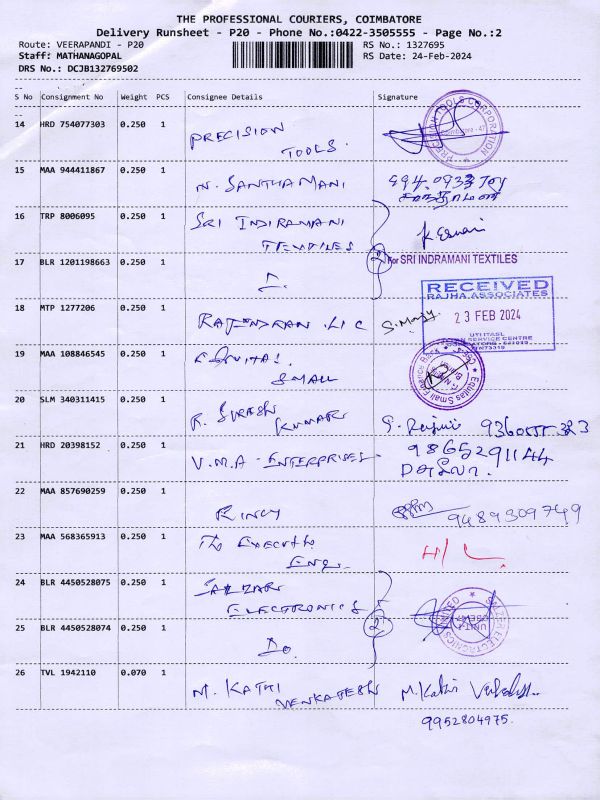 THE PROFESSIONAL COURIERS, COIMBATORE
Delivery Runsheet - P20 - Phone No.:0422-3505555 - Page No.:2
Route: VEERAPANDI - P20 RS No.: 1327695
Staff: MATHANAGOPAL RS Date: 24-Feb-2024
DRS No.: DCJB132769502
S No Consignment No Weight PCS Consignee Details Signature
14 HRD 754077303 0.250 1 PRECISION
TOOLS.
PRECISION TOOLS CORPORATION
15 MAA 944411867 0.250 1 N. SANTHAMANI
சாந்தாமணி
16 TRP 8006095 0.250 1 SRI INDIRAMANI
TEXTILES
2
17 BLR 1201198663 0.250 1 Do.
For SRI INDRAMANI TEXTILES
18 MTP 1277206 0.250 1 RAJENDRAN LIC
RECEIVED
RAJHA ASSOCIATES
23 FEB 2024
UTI ITASL
19 MAA 108846545 0.250 1
SMALL
Equitas Small Finance Bank
20 SLM 340311415 0.250 1 R. SURESH
KUMAR
21 HRD 20398152 0.250 1 V.M.A - ENTERPRISES
9865291144
22 MAA 857690259 0.250 1 RINCY
9489309749
23 MAA 568365913 0.250 1 The Executive
Eng.
24 BLR 4450528075 0.250 1 SALZAR
ELECTRONICS
2
SALZER ELECTRONICS LIMITED
25 BLR 4450528074 0.250 1 Do.
26 TVL 1942110 0.070 1 M. KATHI
VENKATESH
9952804975.